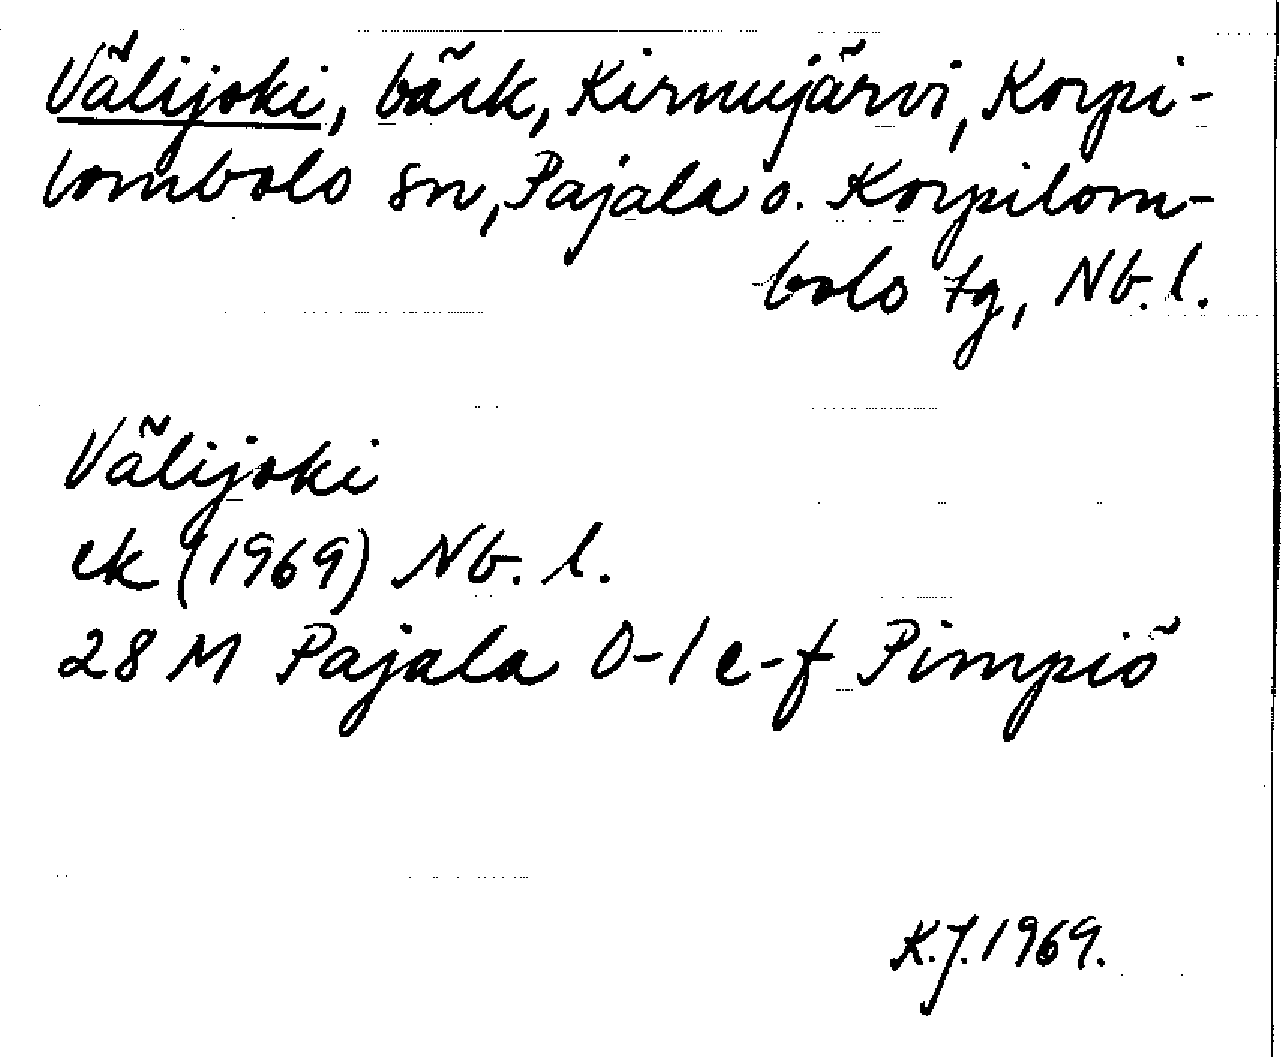 Välijoki, bäck, Kirnujärvi, Korpi-
lombolo sn, Pajala o. Korpilom-
bolo tg, Nb. l.
Välijoki
ek (1969) Nb. l.
28 M Pajala 0-1 e-f Pimpiö
K.J. 1969.